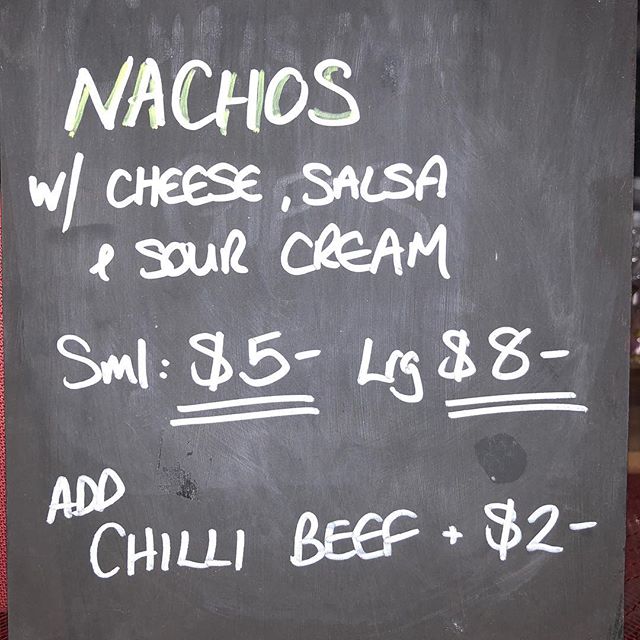 NACHOS
W/ CHEESE, SALSA
& SOUR CREAM
Sml: $5- Lrg $8-
ADD
CHILLI BEEF + $2-